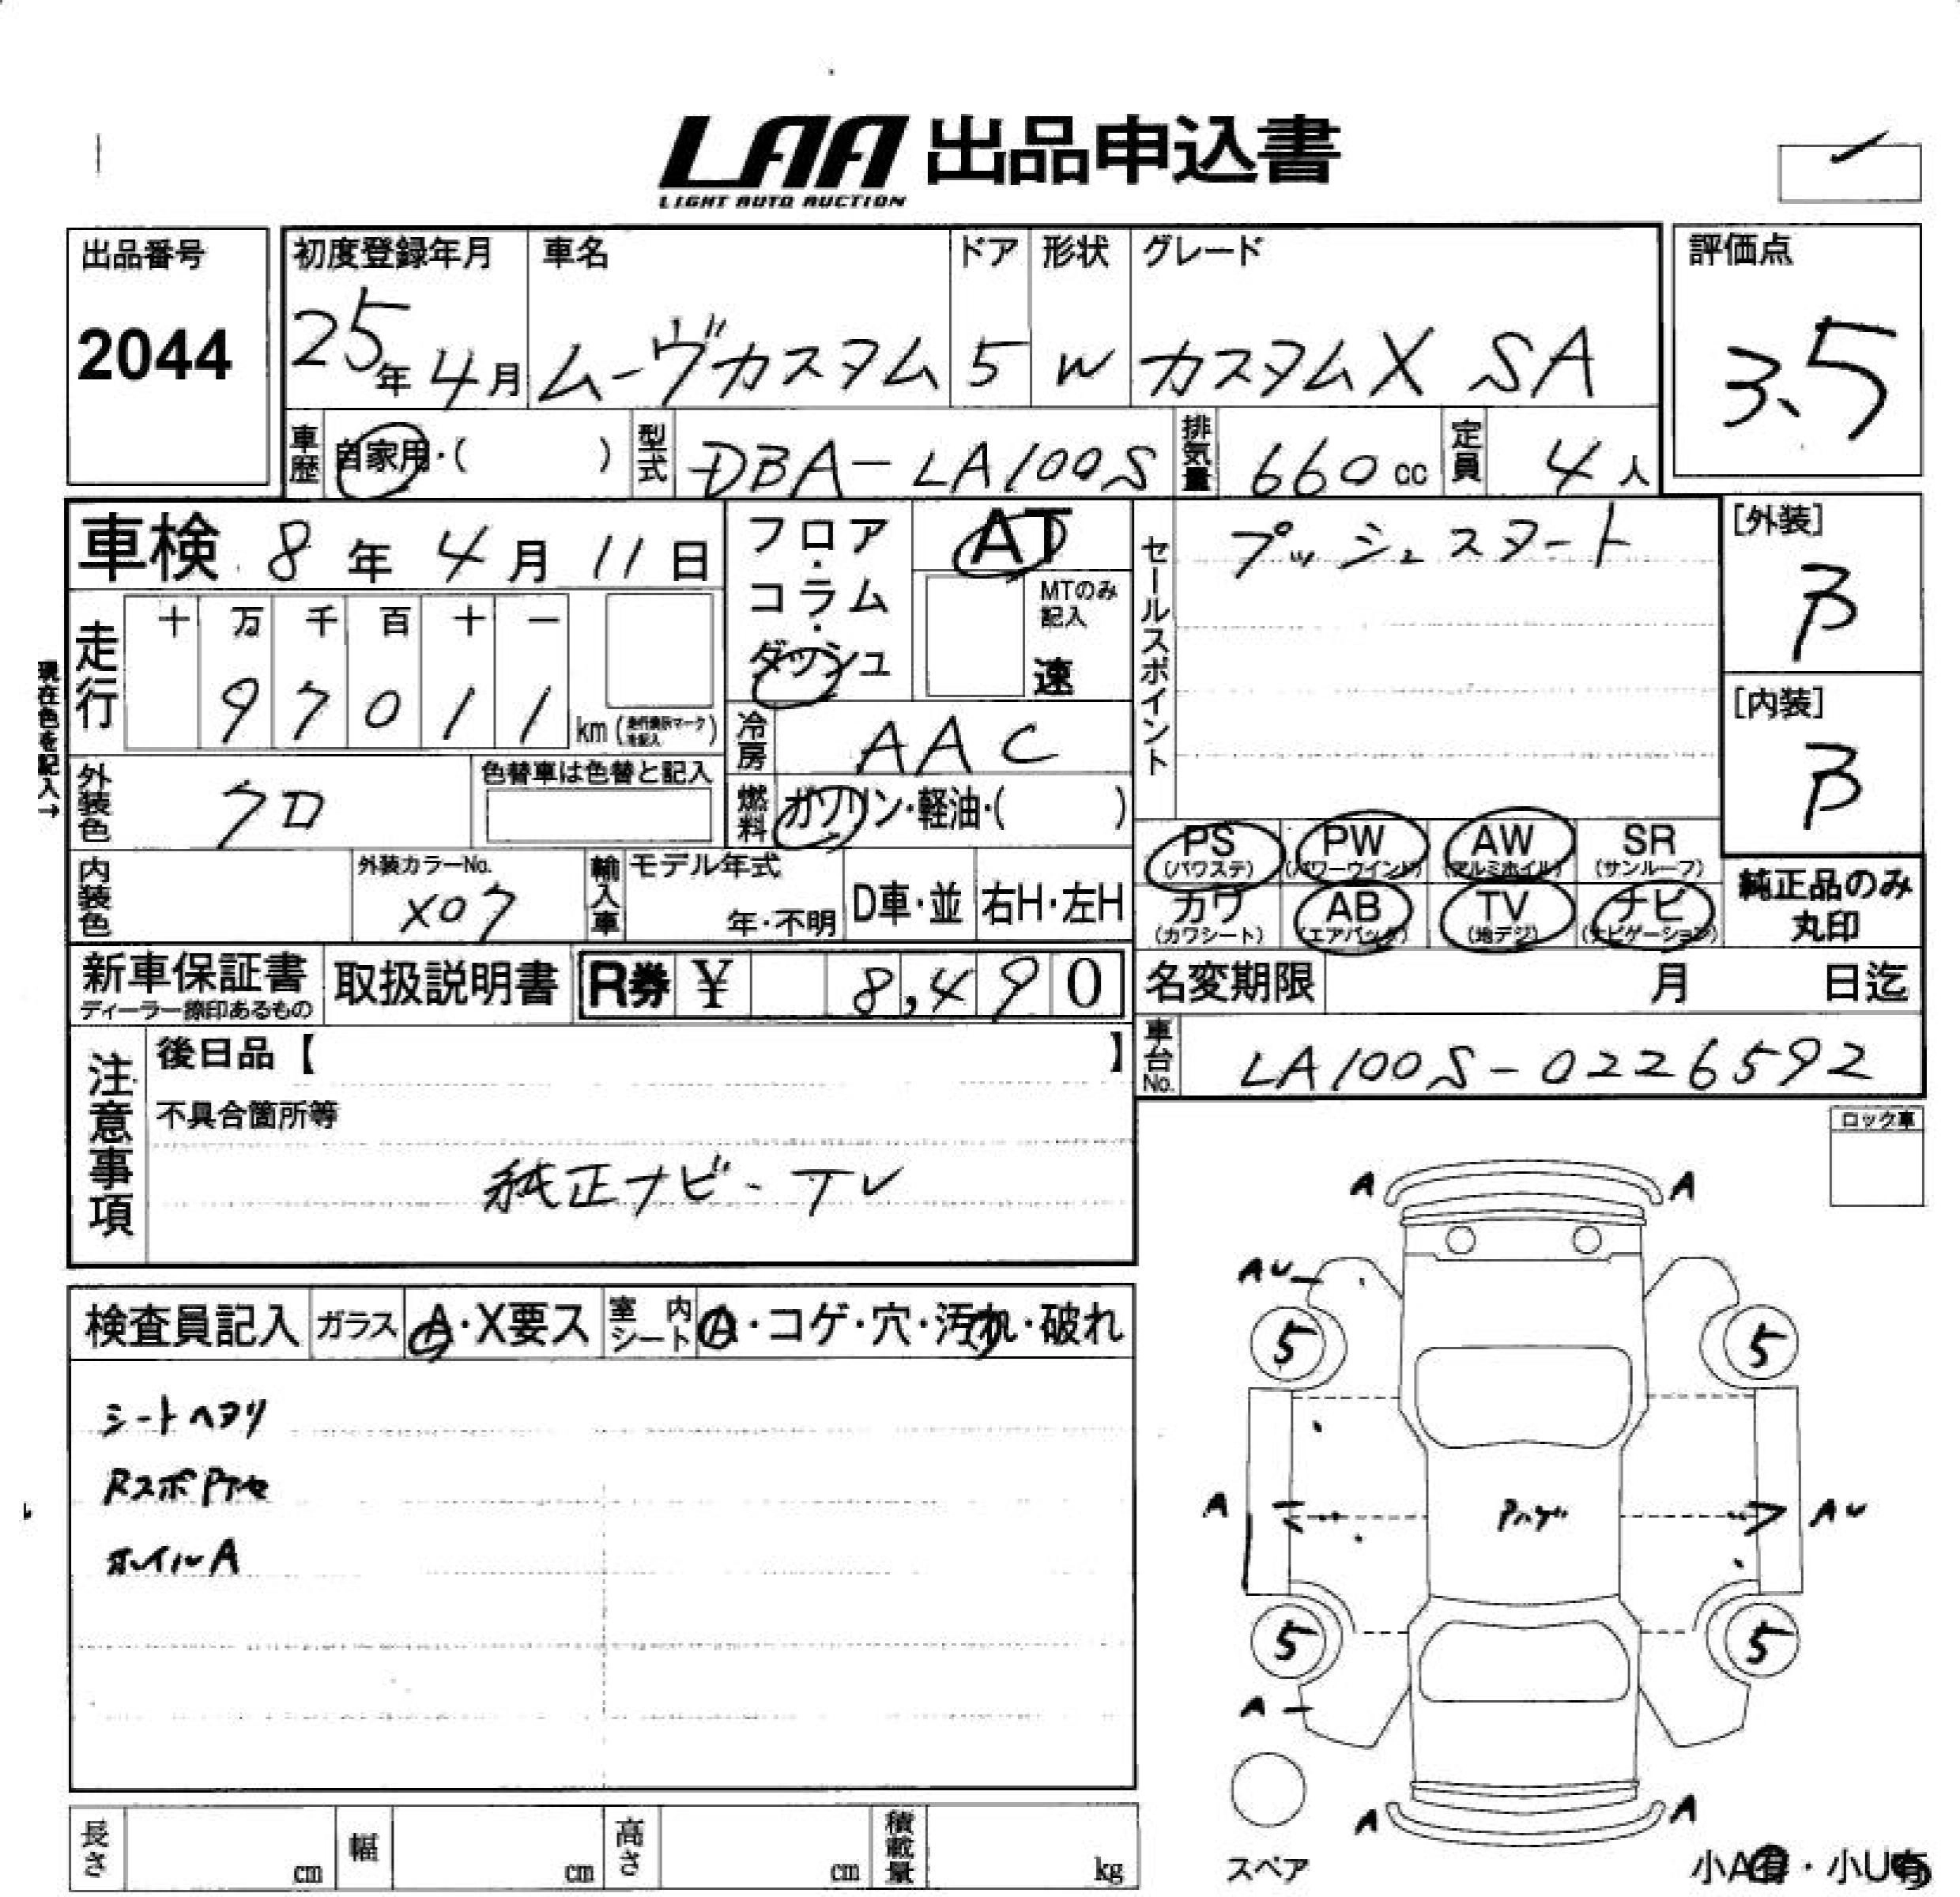 LAA 出品申込書
LIGHT AUTO AUCTION
出品番号
2044
初度登録年月
25年4月
車名
ムーヴカスタム
ドア
5
形状
W
グレード
カスタムX SA
評価点
3.5
車歴
自家用・( )
型式
DBA-LA100S
排気量
660cc
定員
4人
車検 8年4月11日
フロア・コラム・ダッシュ
AT
MTのみ記入
速
セールスポイント
プッシュスタート
[外装]
B
[内装]
B
現在色を記入→
走行
十 万 千 百 十 一
9 7 0 1 1
km (走行表示マークを記入)
冷房
AAC
外装色
クロ
色替車は色替と記入
燃料
ガソリン・軽油・( )
PS (パワステ)
PW (パワーウインド)
AW (アルミホイル)
SR (サンルーフ)
カワ (カワシート)
AB (エアバック)
TV (地デジ)
ナビ (ナビゲーション)
純正品のみ丸印
内装色
外装カラーNo.
X07
輸入車
モデル年式
年・不明
D車・並
右H・左H
新車保証書
ディーラー捺印あるもの
取扱説明書
R券 ¥ 8,490
名変期限 月 日迄
車台No.
LA100S-0226592
注意事項
後日品【 】
不具合箇所等
純正ナビ・TV
ロック車
検査員記入
ガラス
A・X要ス
室内シート
A・コゲ・穴・汚れ・破れ
シートヘタリ
RスポPアセ
ホイルA
A A
AU
5 5
A AU
5 5
A
A A
スペア
小A有・小U有
長さ cm
幅 cm
高さ cm
積載量 kg